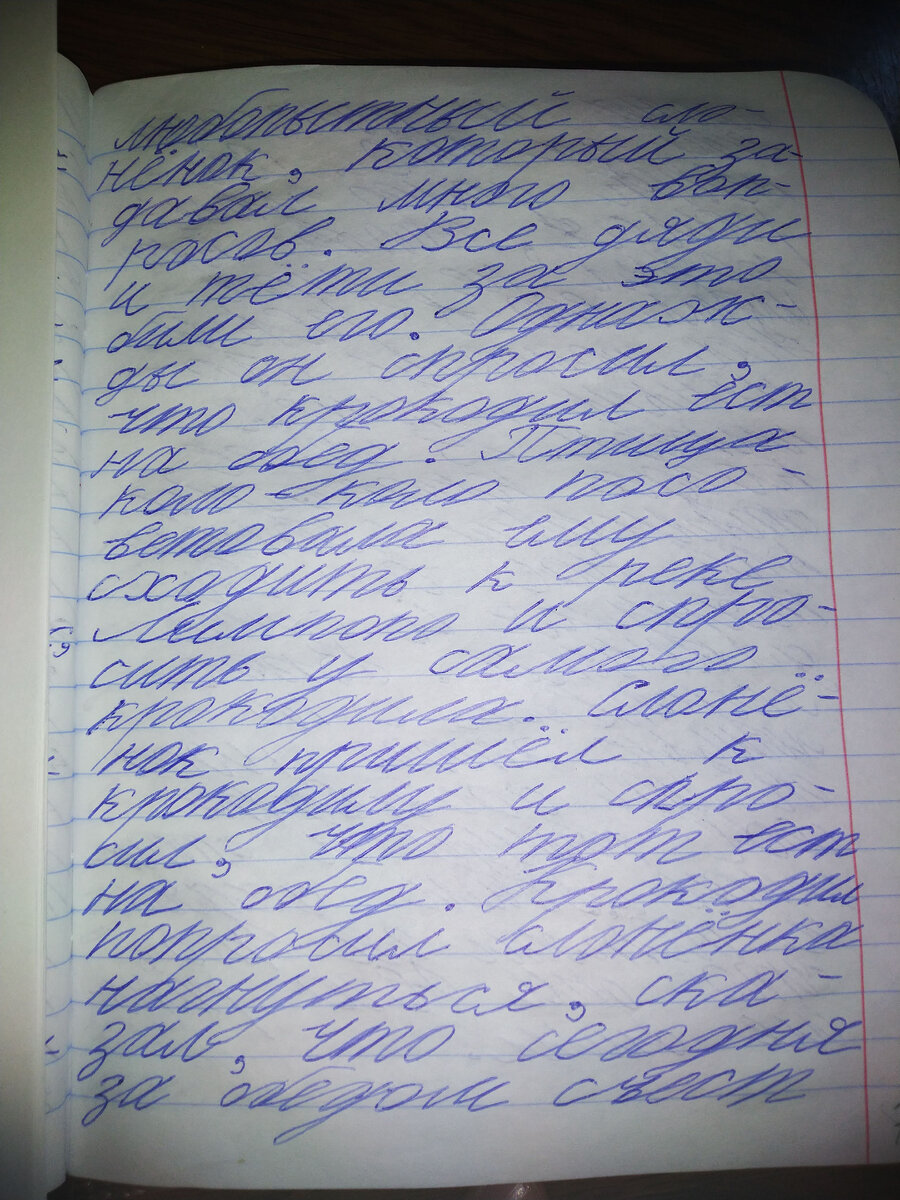 любопытный сло-
нёнок, который за-
давал много воп-
росов. Все дяди
и тёти за это
били его. Однаж-
ды он спросил,
что крокодил ест
на обед. Птица
коло-коло посо-
ветовала ему
сходить к реке
Лимпопо и спро-
сить у самого
крокодила. Слонё-
нок пришёл к
крокодилу и спро-
сил, что тот ест
на обед. Крокодил
попросил слонёнка
нагнуться, ска-
зал, что сегодня
за обедом съест